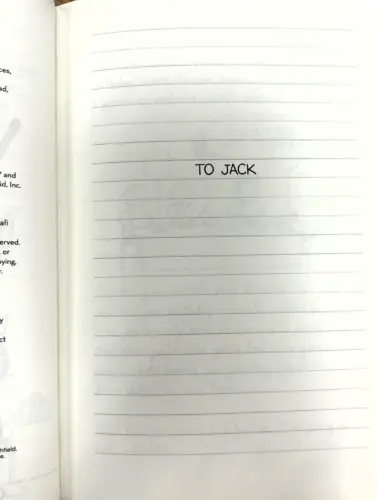 ces,
ad,
" and
id, Inc.
afi
erved.
or
ying,
r.
y
ct
hfield.
e.
TO JACK